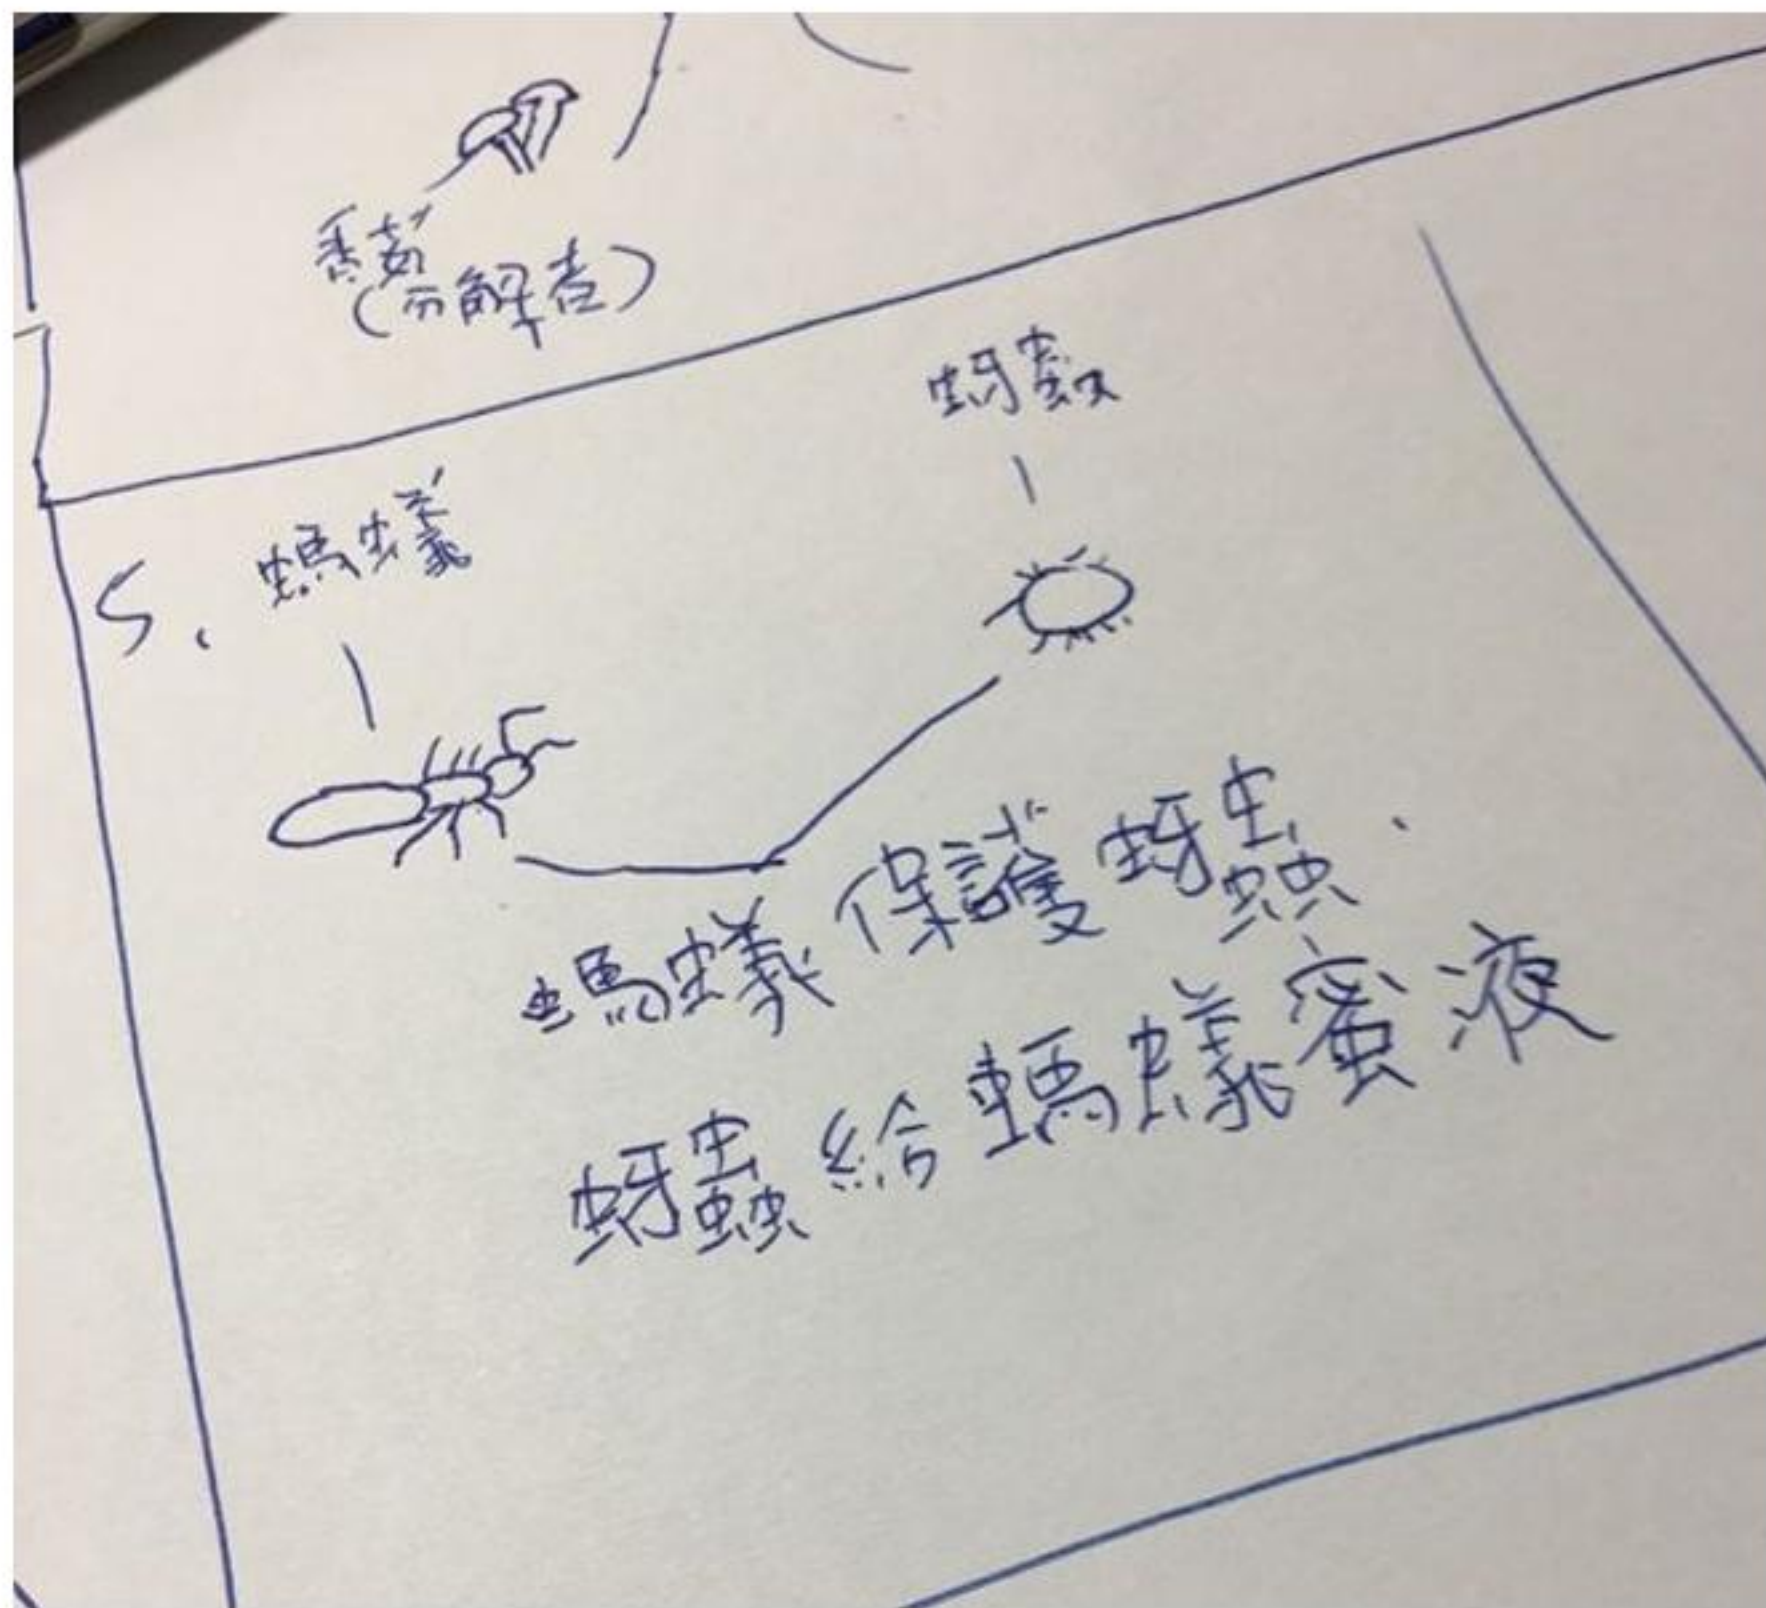 香菇
(分解者)
蚜蟲
5. 螞蟻
螞蟻保護蚜蟲.
蚜蟲給螞蟻蜜液